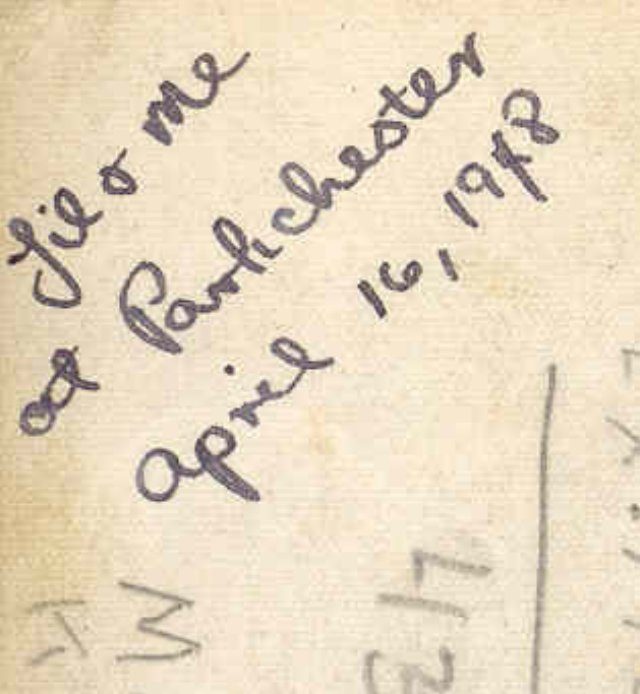 Lil & me
at Parkchester
April 16, 1948